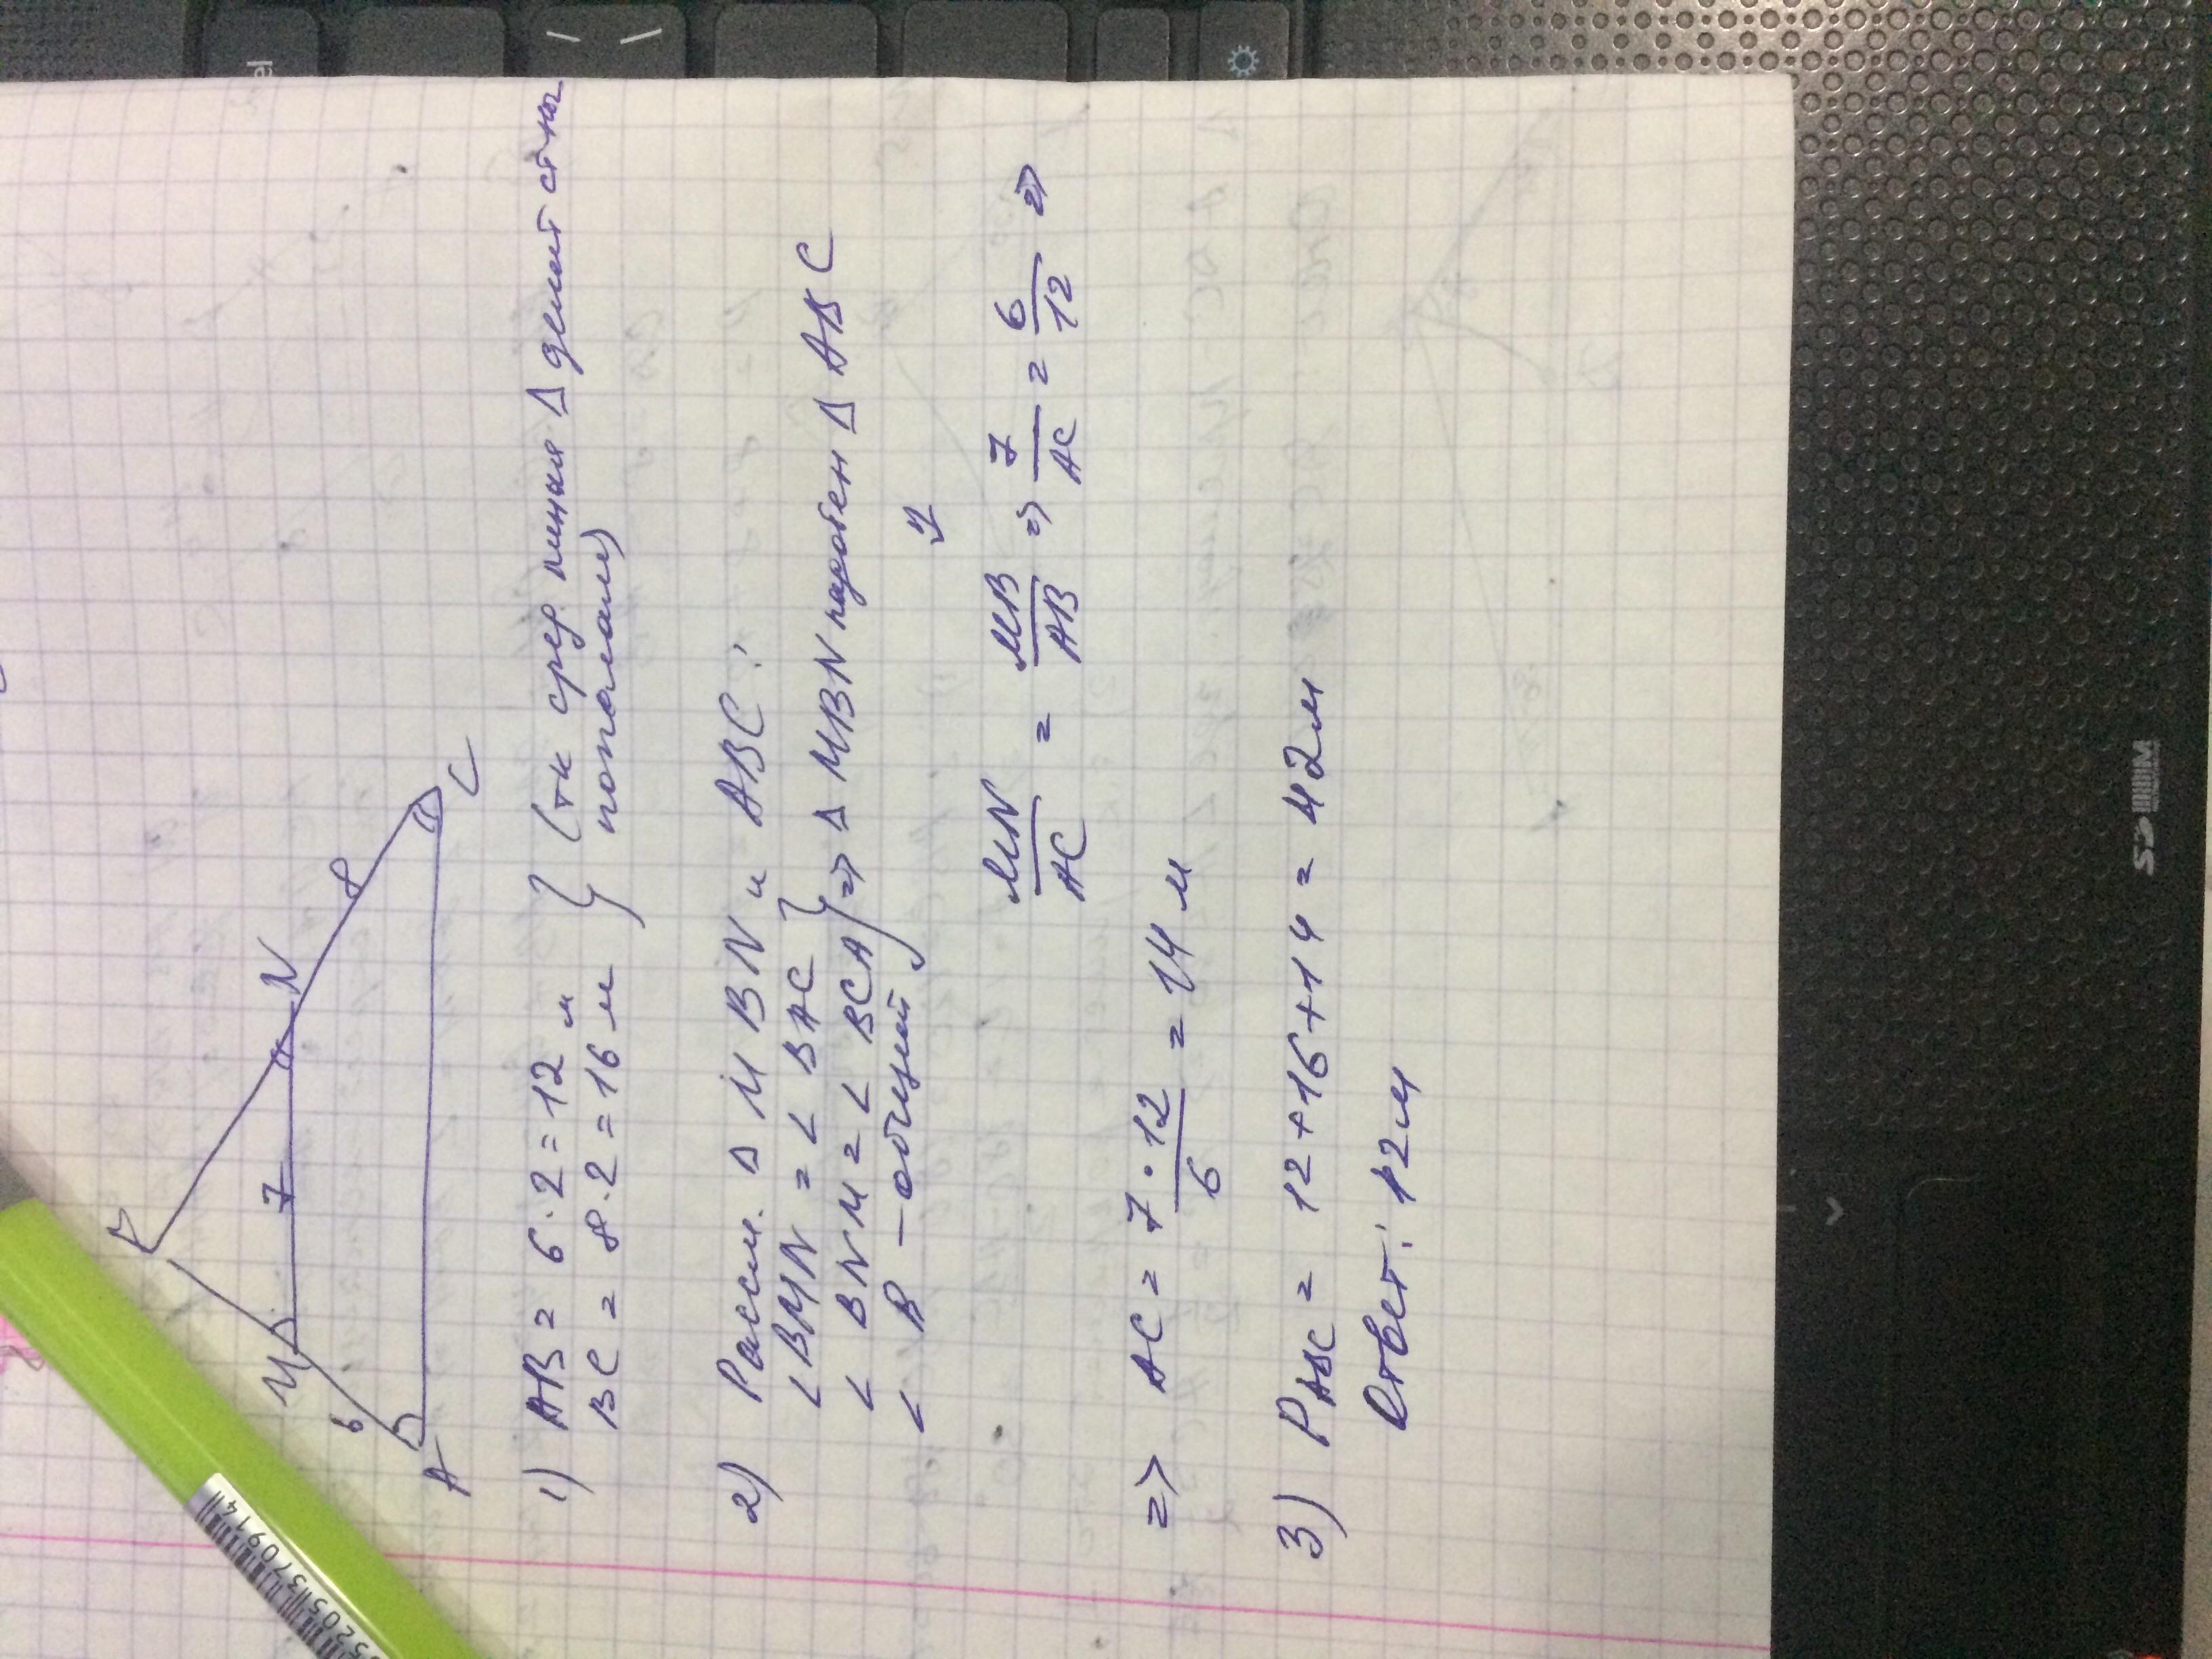 M
N
6
7
8
A
C
1) AB = 6·2 = 12 м
BC = 8·2 = 16 м } (тк сред линия Δ делит стны
пополам)
2) Рассм. Δ MBN и ABC:
∠BMN = ∠BAC
∠BNM = ∠BCA } => Δ MBN подобен Δ ABC
∠B – общий
MN/AC = MB/AB => 7/AC = 6/12 =>
=> AC = 7·12/6 = 14 м
3) PABC = 12+16+14 = 42м
Ответ: 12м
3205113709 14
el
SD